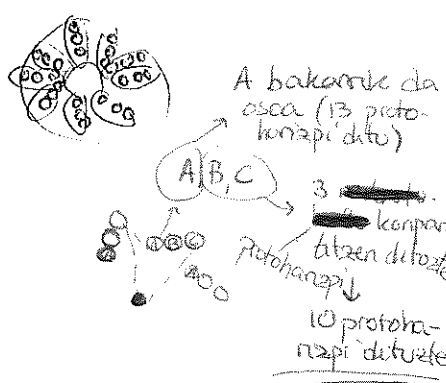 A bakarrik da
osoa (13 proto-
hanzpi ditu)
A, B, C
3
konpar
titzen dituzte
protohanzpi
10 protoha-
nzpi dituzte